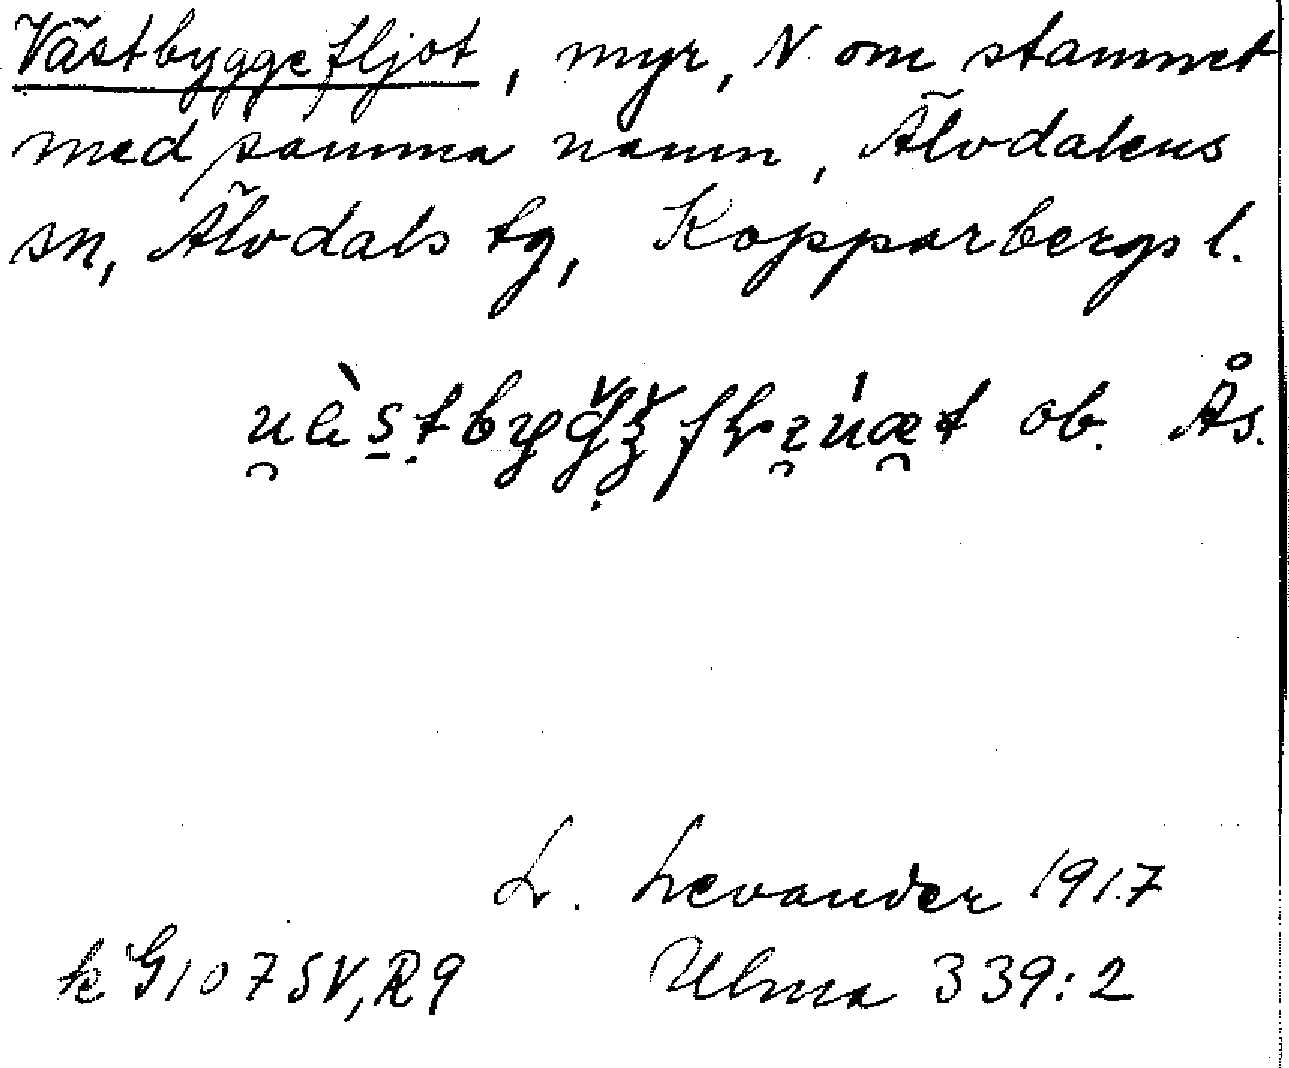 Västbyggefljot, myr, N om stamnet
med samma namn, Älvdalens
sn, Älvdals tg, Kopparbergs l.
ob. Ås.
L. Levander 1917
k G107SV,R9 Ulma 339:2